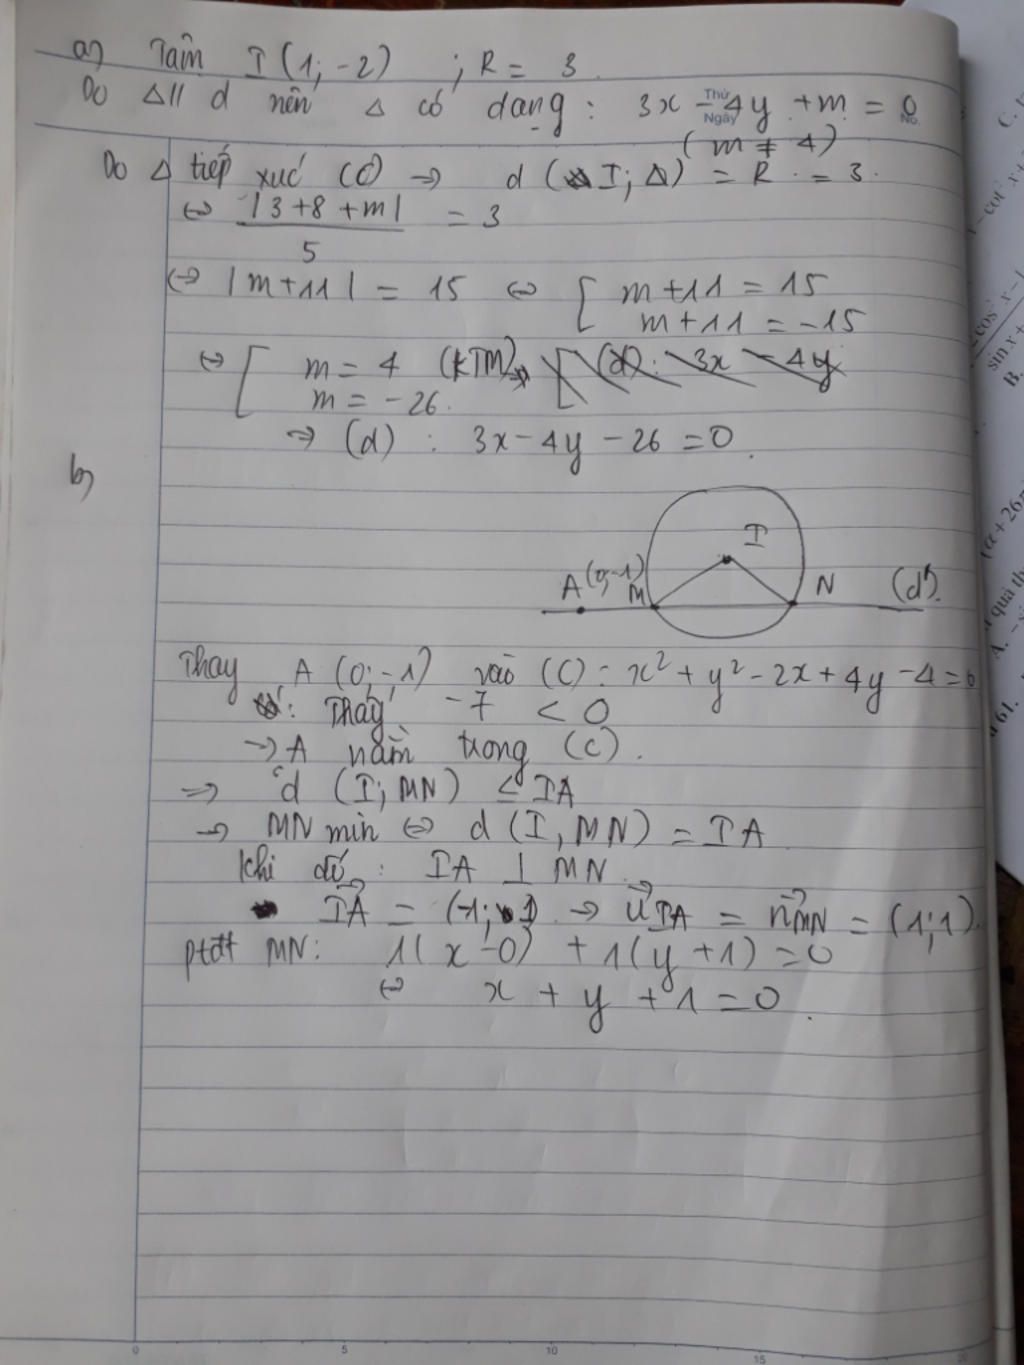 a) Tâm I (1; -2) ; R = 3.
Do Δ // d nên Δ có dạng : 3x - 4y + m = 0
Thứ
Ngày
No.
(m ≠ 4)
Do Δ tiếp xúc (C) → d (I; Δ) = R = 3.
⇔ |3+8+m| / 5 = 3
⇔ |m+11| = 15 ⇔ [ m+11 = 15
m+11 = -15
⇔ [ m = 4 (KTM)
m = -26.
⇒ (d) : 3x - 4y - 26 = 0.
b)
I
A (0;-1) M N (d').
Thay A (0; -1) vào (C) : x² + y² - 2x + 4y - 4 = 0
: Thấy -7 < 0
→ A nằm trong (C).
⇒ d (I; MN) ≤ IA
→ MN min ⇔ d (I, MN) = IA
Khi đó : IA ⊥ MN.
IA = (-1; 1) → u IA = n MN = (1; 1).
ptđt MN: 1(x-0) + 1(y+1) = 0
⇔ x + y + 1 = 0.
0 5 10 15